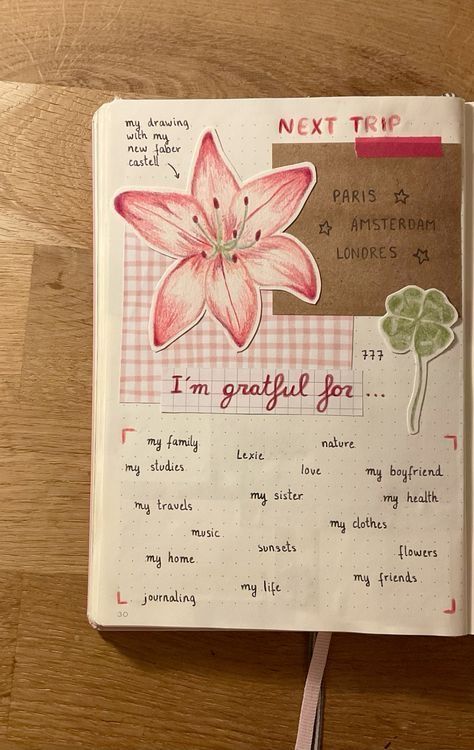 my drawing
with my
new faber
castell
NEXT TRIP
PARIS
AMSTERDAM
LONDRES
777
I'm gratful for ...
my family
nature
Lexie
my studies
love
my boyfriend
my sister
my health
my travels
my clothes
music
sunsets
flowers
my home
my friends
my life
journaling
30